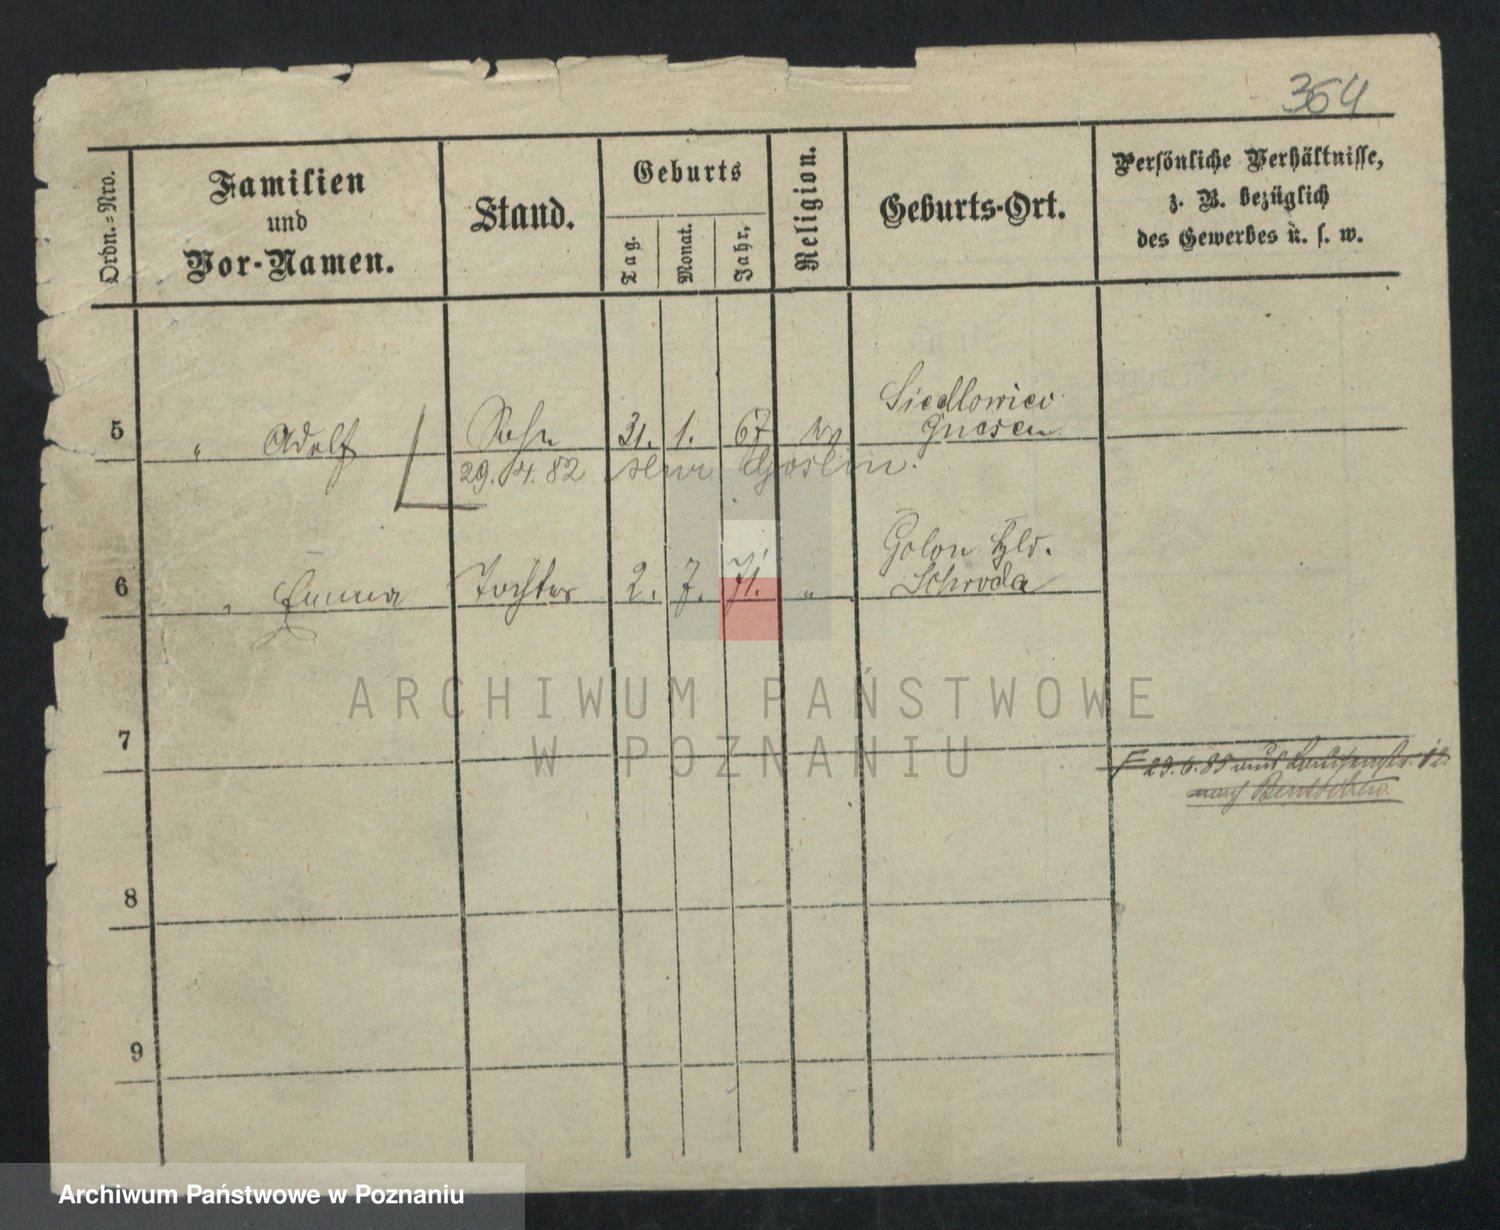 364
Ordn.=Nro.
Familien
und
Vor-Namen.
Stand.
Geburts
Tag.
Monat.
Jahr.
Religion.
Geburts-Ort.
Persönliche Verhältnisse,
z. B. bezüglich
des Gewerbes u. s. w.
Siedlowiec
5 " Adolf Sohn 31. 1. 67 Gnesen
29. 4. 82 Goslin.
Golon Hld.
6 " Emma Tochter 2. 7. 71. " Schroda
7
29. 6. 85
nach Bentschen
8
9
ARCHIWUM PAŃSTWOWE
W POZNANIU
Archiwum Państwowe w Poznaniu